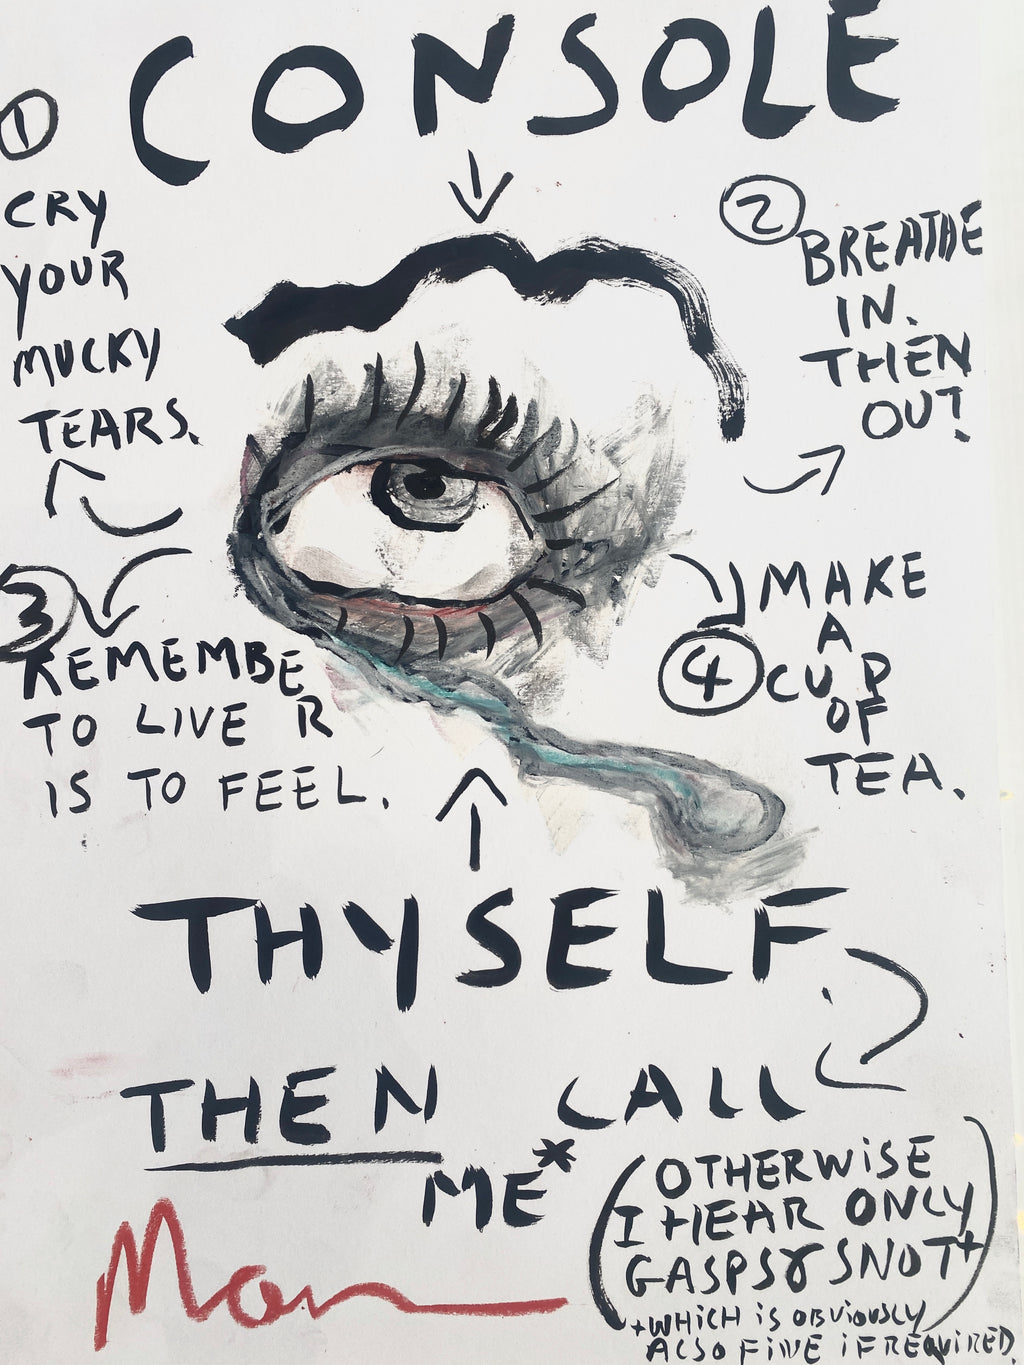 CONSOLE
1
CRY
YOUR
MUCKY
TEARS.
2
BREATHE
IN.
THEN
OUT.
3
REMEMBER
TO LIVE
IS TO FEEL.
4
MAKE
A
CUP
OF
TEA.
THYSELF
THEN CALL
ME*
(OTHERWISE
I HEAR ONLY
GASPS & SNOT+)
+WHICH IS OBVIOUSLY
ALSO FINE IF REQUIRED.
Mom